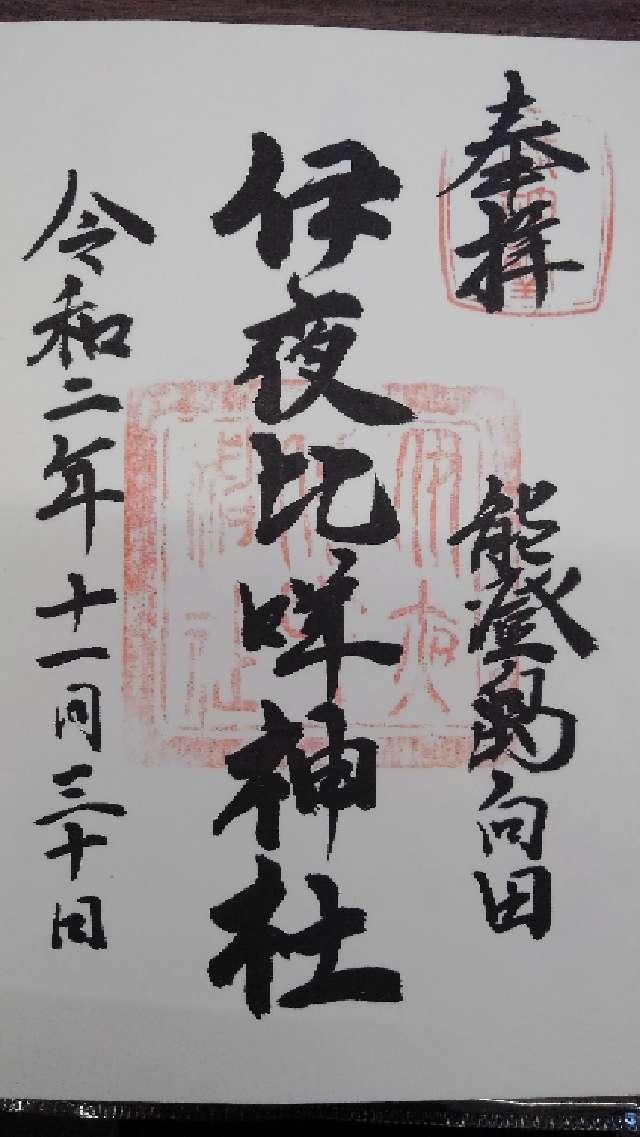 奉拝
能登島向田
伊夜比咩神社
伊夜
神社
令和二年十一月三十日